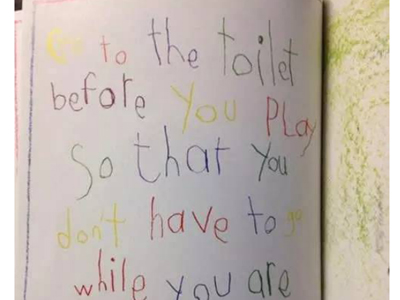 Go to the toilet
before you PLay
So that you
don't have to go
while you are